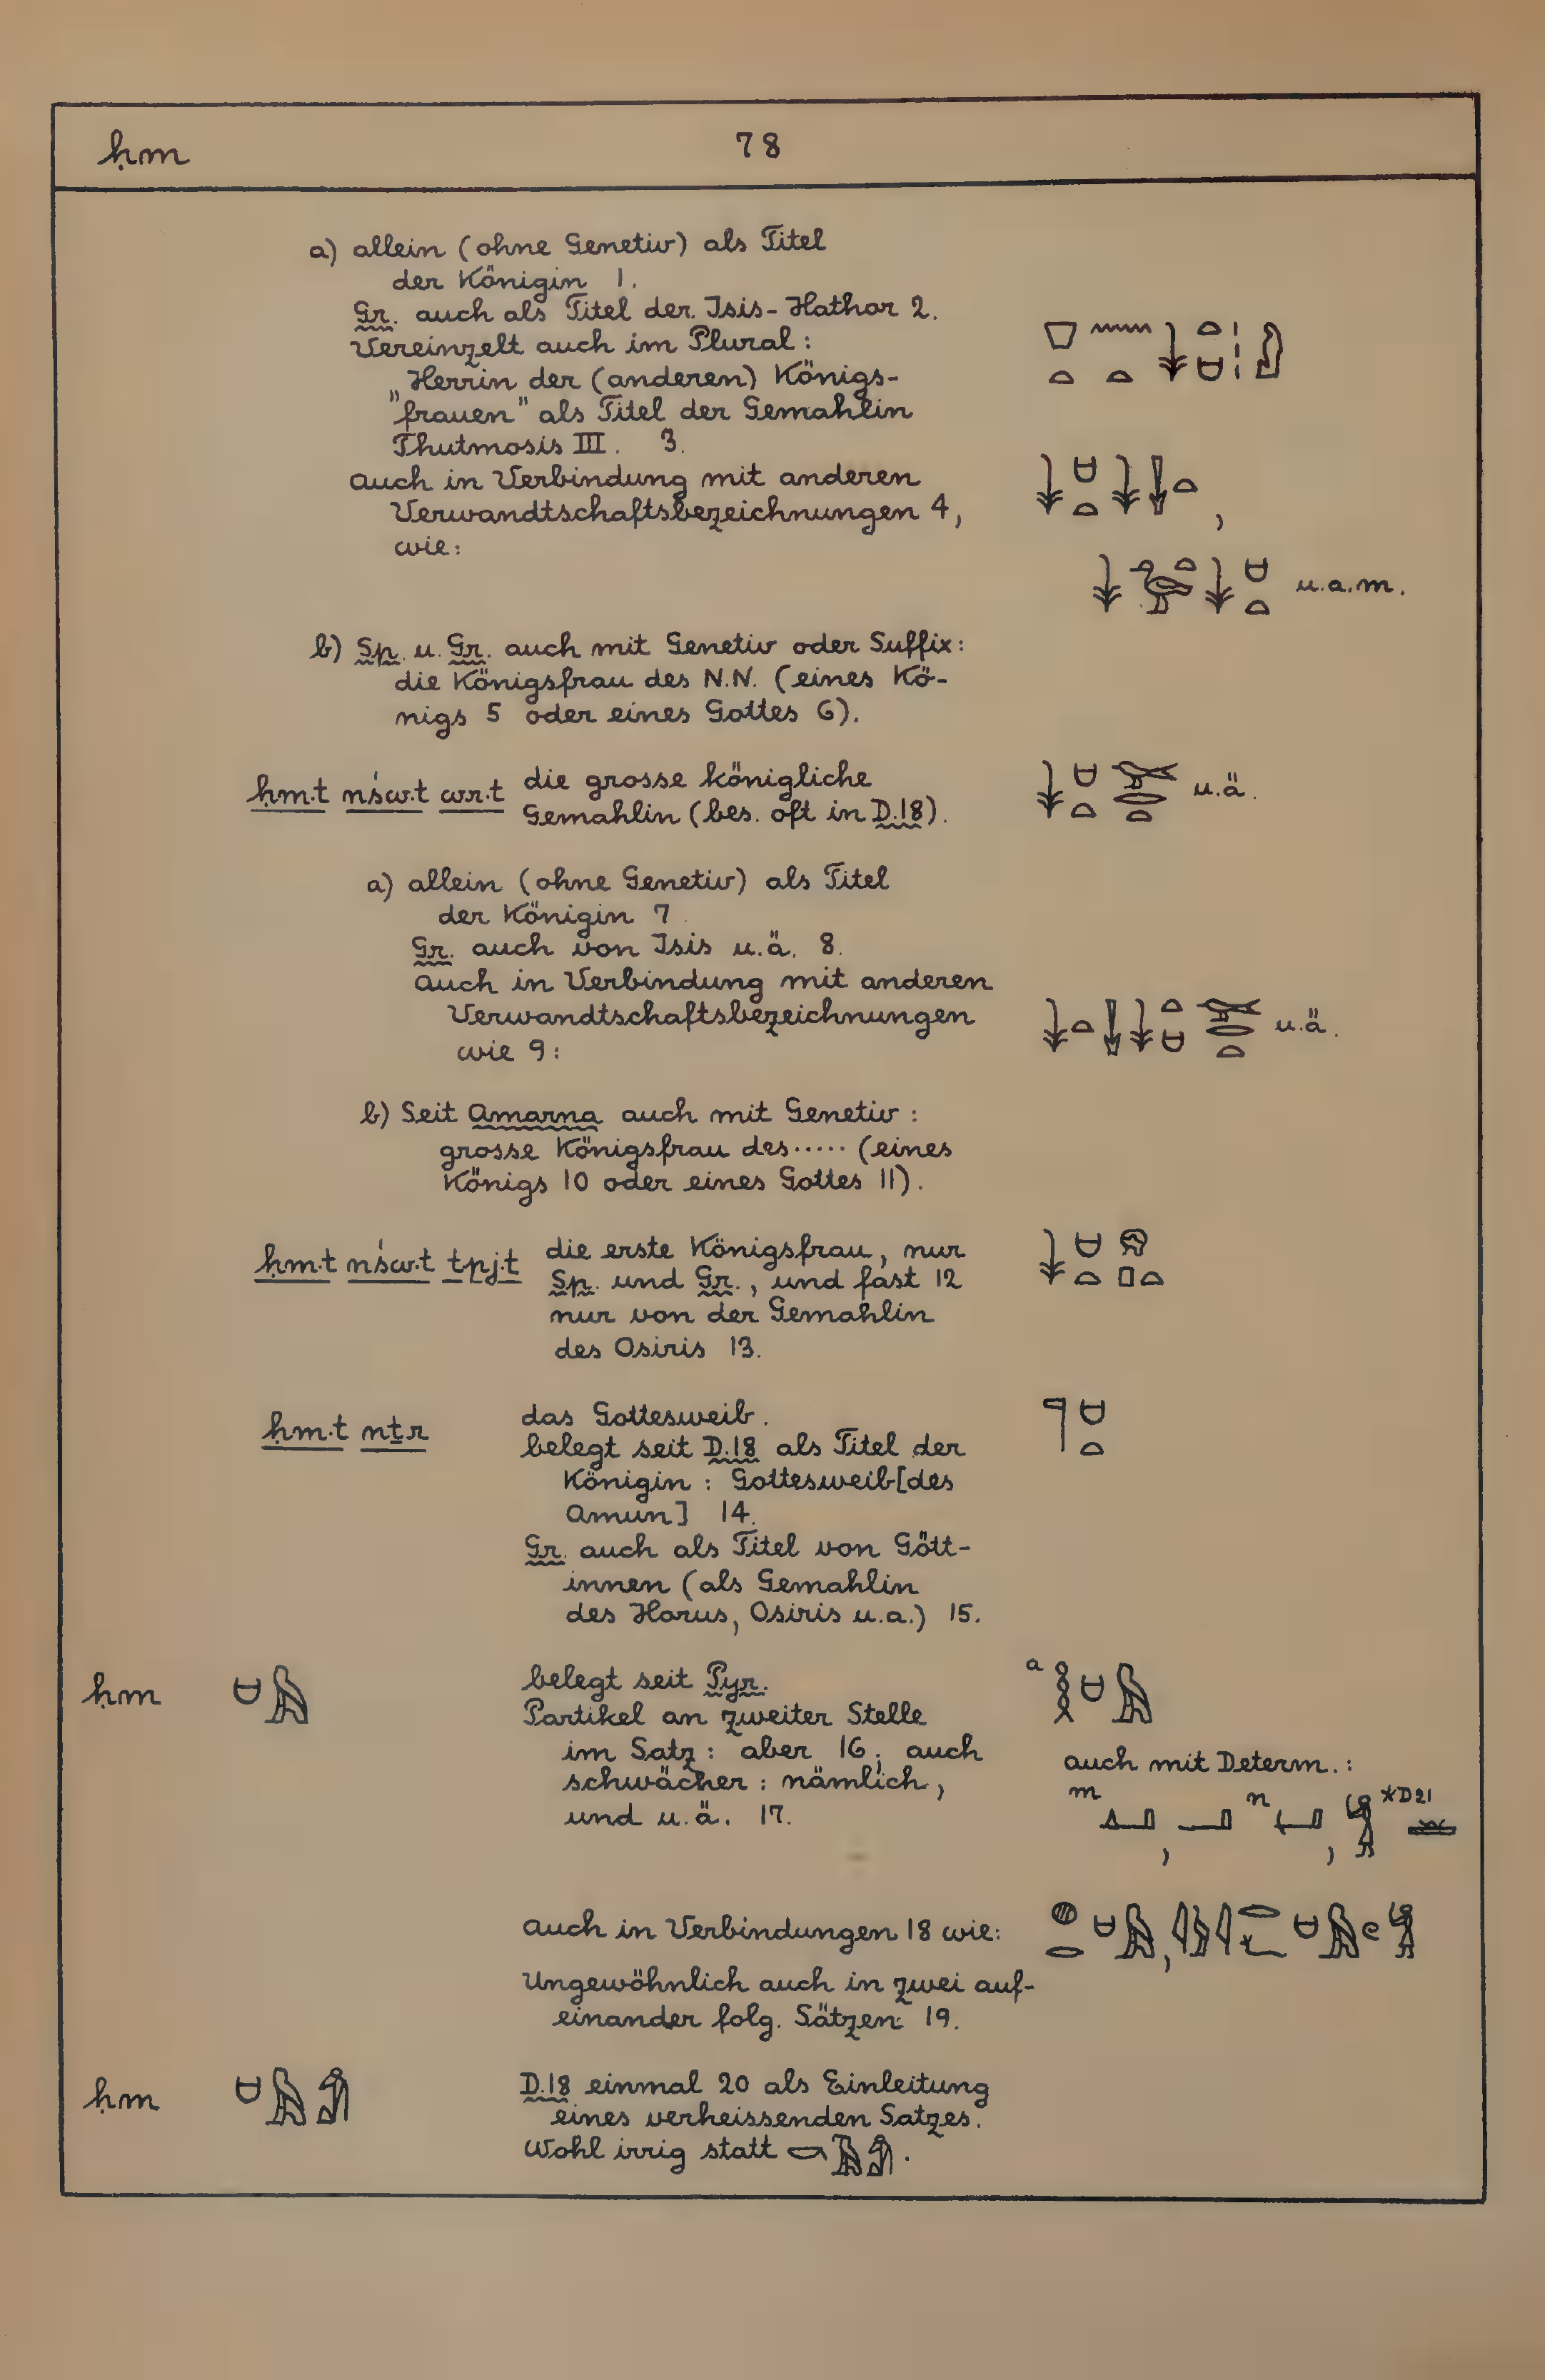 ḥm 78
a) allein (ohne Genetiv) als Titel
der Königin 1.
Gr. auch als Titel der Isis-Hathor 2.
Vereinzelt auch im Plural:
„Herrin der (anderen) Königs-
frauen" als Titel der Gemahlin
Thutmosis III. 3.
Auch in Verbindung mit anderen
Verwandtschaftsbezeichnungen 4,
wie:
u.a.m.
b) Sp. u. Gr. auch mit Genetiv oder Suffix:
die Königsfrau des N.N. (eines Kö-
nigs 5 oder eines Gottes 6).
ḥm·t nśw·t wr·t die grosse königliche u.ä.
Gemahlin (bes. oft in D.18).
a) allein (ohne Genetiv) als Titel
der Königin 7
Gr. auch von Isis u.ä. 8.
Auch in Verbindung mit anderen
Verwandtschaftsbezeichnungen
wie 9: u.ä.
b) Seit Amarna auch mit Genetiv:
grosse Königsfrau des ····· (eines
Königs 10 oder eines Gottes 11).
ḥm·t nśw·t tpj·t die erste Königsfrau, nur
Sp. und Gr., und fast 12
nur von der Gemahlin
des Osiris 13.
ḥm·t nṯr das Gottesweib.
belegt seit D.18 als Titel der
Königin: Gottesweib [des
Amun] 14.
Gr. auch als Titel von Gött-
innen (als Gemahlin
des Horus, Osiris u.a.) 15.
ḥm belegt seit Pyr. a
Partikel an zweiter Stelle
im Satz: aber 16; auch auch mit Determ.:
schwächer: nämlich, m n *D21
und u.ä. 17.
auch in Verbindungen 18 wie:
Ungewöhnlich auch in zwei auf-
einander folg. Sätzen: 19.
ḥm D.18 einmal 20 als Einleitung
eines verheissenden Satzes.
Wohl irrig statt .